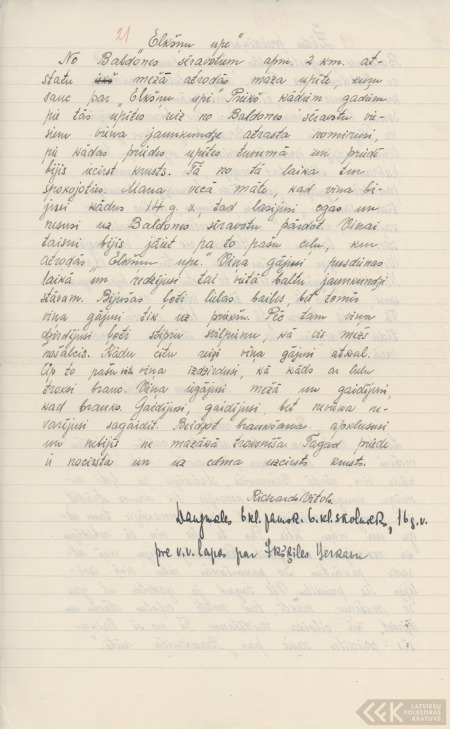 21
"Elkšņu upe"
No Baldones sēravotiem apm. 2 km. at-
statu mežā atrodas maza upīte, kuŗu
sauc par "Elkšņu upi." Priekš kādiem gadiem
pie tās upītes viņā no Baldones sēravotu vie-
siem viena jaunkundze atrasta nomirusi,
pie kādas priedes upītes tuvumā un priedē
bijis izcirst krusts. Tā no tā laika tur
spokojoties. Mana vecā māte, kad viņa bi-
jusi kādus 14 g. v., tad lasījusi ogas un
nesusi uz Baldones sēravotu pārdot. Viņai
taisni bijis jāiet pa to pašu ceļu, kur
atrodas "Elkšņu upe". Viņa gājusi pusdienas
laikā un redzējusi tai vietā baltu jaunkundzi
stāvam. Bijušas ļoti lielas bailes, bet tomēr
viņa gājusi tik uz priekšu. Pēc tam viņa
dzirdējusi ļoti stipru svilpienu, ka viss mežs
nošalcis. Kādu citu reizi viņa gājusi atkal.
Ap to pašu viņa izdzirdusi, kā kāds ar lielu
troksni brauc. Viņa iegājusi mežā un gaidījusi,
kad brauks. Gaidījusi, gaidījusi, bet neviena ne-
varējusi sagaidīt. Beidzot braukšana apklususi
un nebijis ne mazākā trokšnīša. Tagad priede
ir nocirsta un uz celma uzcirsts krusts.
Richards Vītols
Daugmales 6 kl. pamsk. 6. kl. skolnieks, 16 g. v.
pie v. v. lapas par Ikšķiles
LATVIEŠU
FOLKLORAS
KRĀTUVE